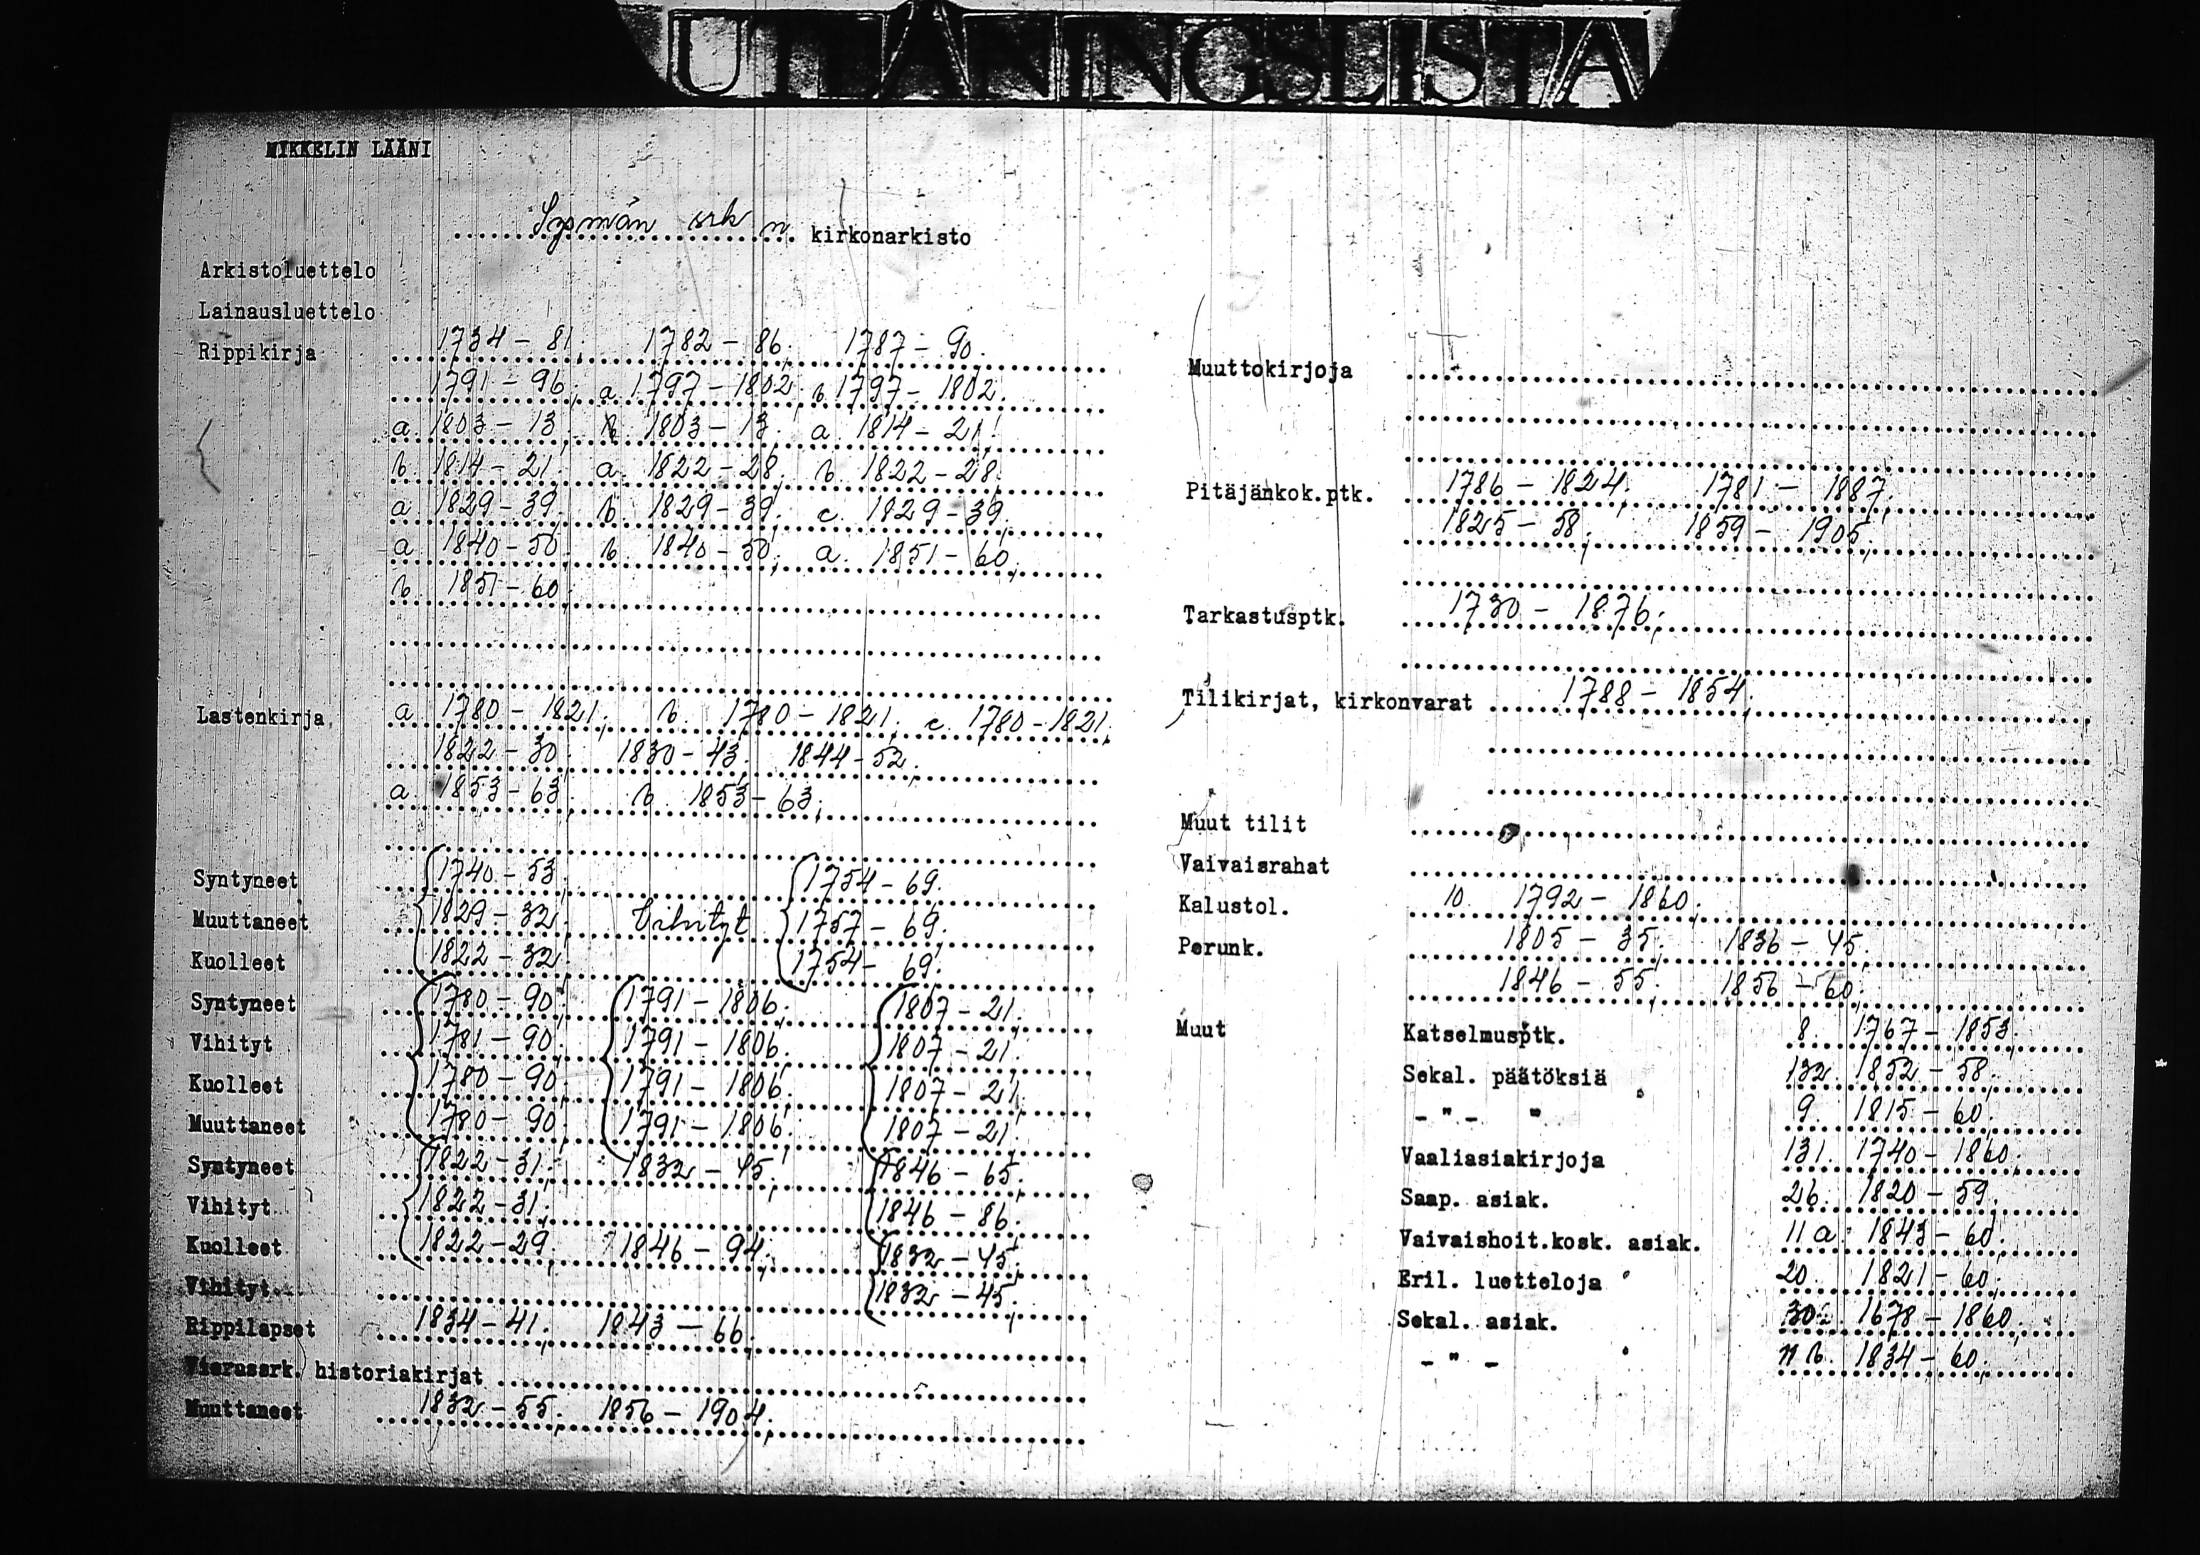 UTLÅNINGSLISTA
MIKKELIN LÄÄNI
Sysmän srk n. kirkonarkisto
Arkistoluettelo
Lainausluettelo
Rippikirja 1734-81; 1782-86; 1787-90.
1791-96; a. 1797-1802; b. 1797-1802.
a. 1803-13; b. 1803-13; a. 1814-21;
b. 1814-21; a. 1822-28; b. 1822-28;
a. 1829-39; b. 1829-39; c. 1829-39;
a. 1840-50; b. 1840-50; a. 1851-60;
b. 1851-60;
Lastenkirja a. 1780-1821; b. 1780-1821; c. 1780-1821;
1822-30; 1830-43; 1844-52;
a. 1853-63; b. 1853-63;
Syntyneet 1740-53; 1754-69.
Muuttaneet 1829-32; Vihityt 1757-69.
Kuolleet 1822-32; 1754-69.
Syntyneet 1780-90; 1791-1806; 1807-21;
Vihityt 1781-90; 1791-1806; 1807-21;
Kuolleet 1780-90; 1791-1806; 1807-21;
Muuttaneet 1780-90; 1791-1806; 1807-21;
Syntyneet 1822-31; 1832-45; 1846-65;
Vihityt 1822-31; 1846-86;
Kuolleet 1822-29; 1846-94; 1832-45;
Vihityt 1832-45;
Rippilapset 1834-41; 1843-66;
Vierussrk. historiakirjat
Muuttaneet 1832-55; 1856-1904;
Muuttokirjoja
Pitäjänkok.ptk. 1786-1824; 1781-1887;
1825-58; 1859-1905;
Tarkastusptk. 1730-1876;
Tilikirjat, kirkonvarat 1788-1854;
Muut tilit
Vaivaisrahat
Kalustol. 10. 1792-1860;
Perunk. 1805-35; 1836-45;
1846-55; 1856-60;
Muut Katselmusptk. 8. 1767-1853;
Sekal. päätöksiä 132. 1852-58;
- " - " 9. 1815-60;
Vaaliasiakirjoja 131. 1740-1860;
Saap. asiak. 26. 1820-59;
Vaivaishoit.kosk. asiak. 11 a. 1843-60;
Eril. luetteloja 20. 1821-60;
Sekal. asiak. 30. 1678-1860;
- " - 11 b. 1834-60;